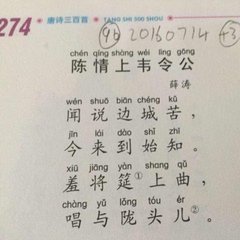 274
唐诗三百首 • TANG SHI 300 SHOU
96 20160714
chén qíng shàng wéi lìng gōng
陈情上韦令公
薛涛
wén shuō biān chéng kǔ
闻说边城苦，
jīn lái dào shǐ zhī
今来到始知。
xiū jiāng yán shang qǔ
羞将筵①上曲，
chàng yǔ lǒng tóu ér
唱与陇头儿②。